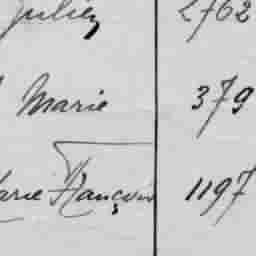 Julien 2762
Marie 379
Marie François 1197